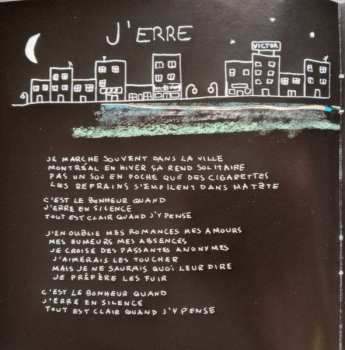 J'ERRE
VICTOR
JE MARCHE SOUVENT DANS LA VILLE
MONTRÉAL EN HIVER ÇA REND SOLITAIRE
PAS UN SOU EN POCHE QUE DES CIGARETTES
LES REFRAINS S'EMPILENT DANS MA TÊTE
C'EST LE BONHEUR QUAND
J'ERRE EN SILENCE
TOUT EST CLAIR QUAND J'Y PENSE
J'EN OUBLIE MES ROMANCES MES AMOURS
MES RUMEURS MES ABSENCES
JE CROISE DES PASSANTES ANONYMES
J'AIMERAIS LES TOUCHER
MAIS JE NE SAURAIS QUOI LEUR DIRE
JE PRÉFÈRE LES FUIR
C'EST LE BONHEUR QUAND
J'ERRE EN SILENCE
TOUT EST CLAIR QUAND J'Y PENSE